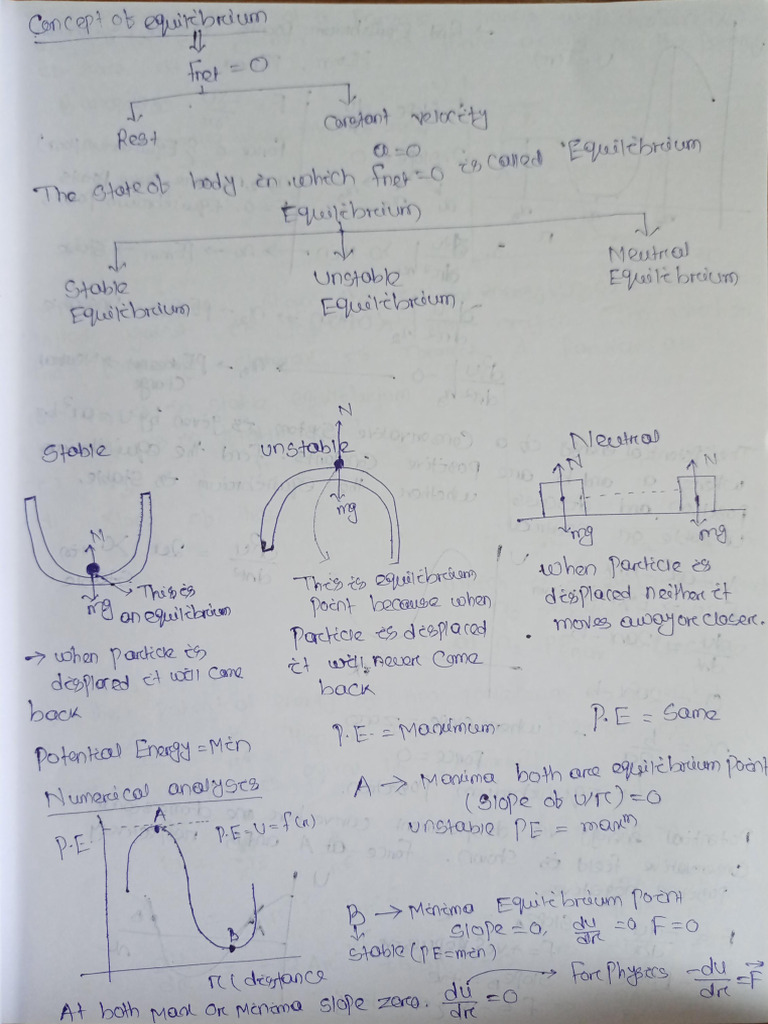 Concept of equilibrium
⇓
Fnet = 0
Rest
Constant velocity
a=0
The state of body in which Fnet=0 is called Equilibrium
Equilibrium
Stable Equilibrium
Unstable Equilibrium
Neutral Equilibrium
Stable
N
mg
This is
an equilibrium
→ when particle is
displaced it will come
back
Potential Energy = Min
unstable
N
mg
This is equilibrium
point because when
Particle is displaced
it will never come
back
P.E. = Maximum
Neutral
N
N
mg
mg
when Particle is
displaced neither it
moves away or closer.
P.E = Same
Numerical analyses
P.E
A
P.E = U = f(x)
B
r(distance
A → Maxima both are equilibrium point
(slope of U/r) = 0
unstable PE = maxᵐ
B → Minima Equilibrium point
slope = 0, du/dr = 0 F = 0
↓
stable (PE=min)
At both Max or Minima slope zero. du/dr = 0 → For Physics -du/dr = F⃗